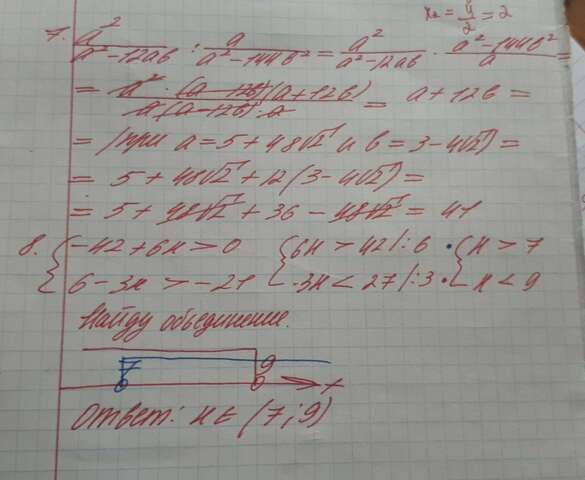 x₂ = 4/2 = 2
7. a²/(a²-12ab) : a/(a²-144b²) = a²/(a²-12ab) · (a²-144b²)/a =
= a² · (a-12b)(a+12b)/(a(a-12b) · a) = a+12b =
= /при a=5+48√2 и b=3-4√2) =
= 5+48√2+12(3-4√2) =
= 5+48√2+36-48√2 = 41
8. {-42+6x>0 {6x>42/:6 • {x>7
6-3x>-21 -3x<27/:3 • x<9
Найду объединение.
7 9 x
Ответ: x ∈ (7;9)